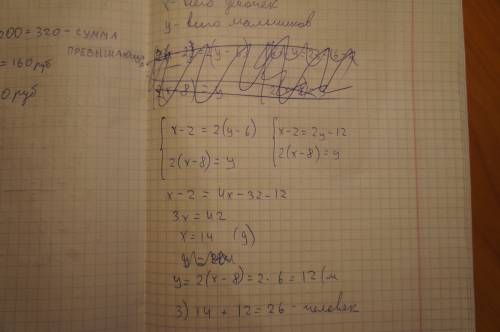 000 = 320 - СУММА
ПРЕВЫШАЮЩ
= 160 руб
0 руб
x - всего девочек
y - всего мальчиков
x-2 = 2(y-6)
2(x-8) = y
x-2 = 2y-12
2(x-8) = y
x-2 = 4x-32-12
3x = 42
x = 14 (g)
y = 2(x-8) = 2·6 = 12 (м
3) 14 + 12 = 26 - человек